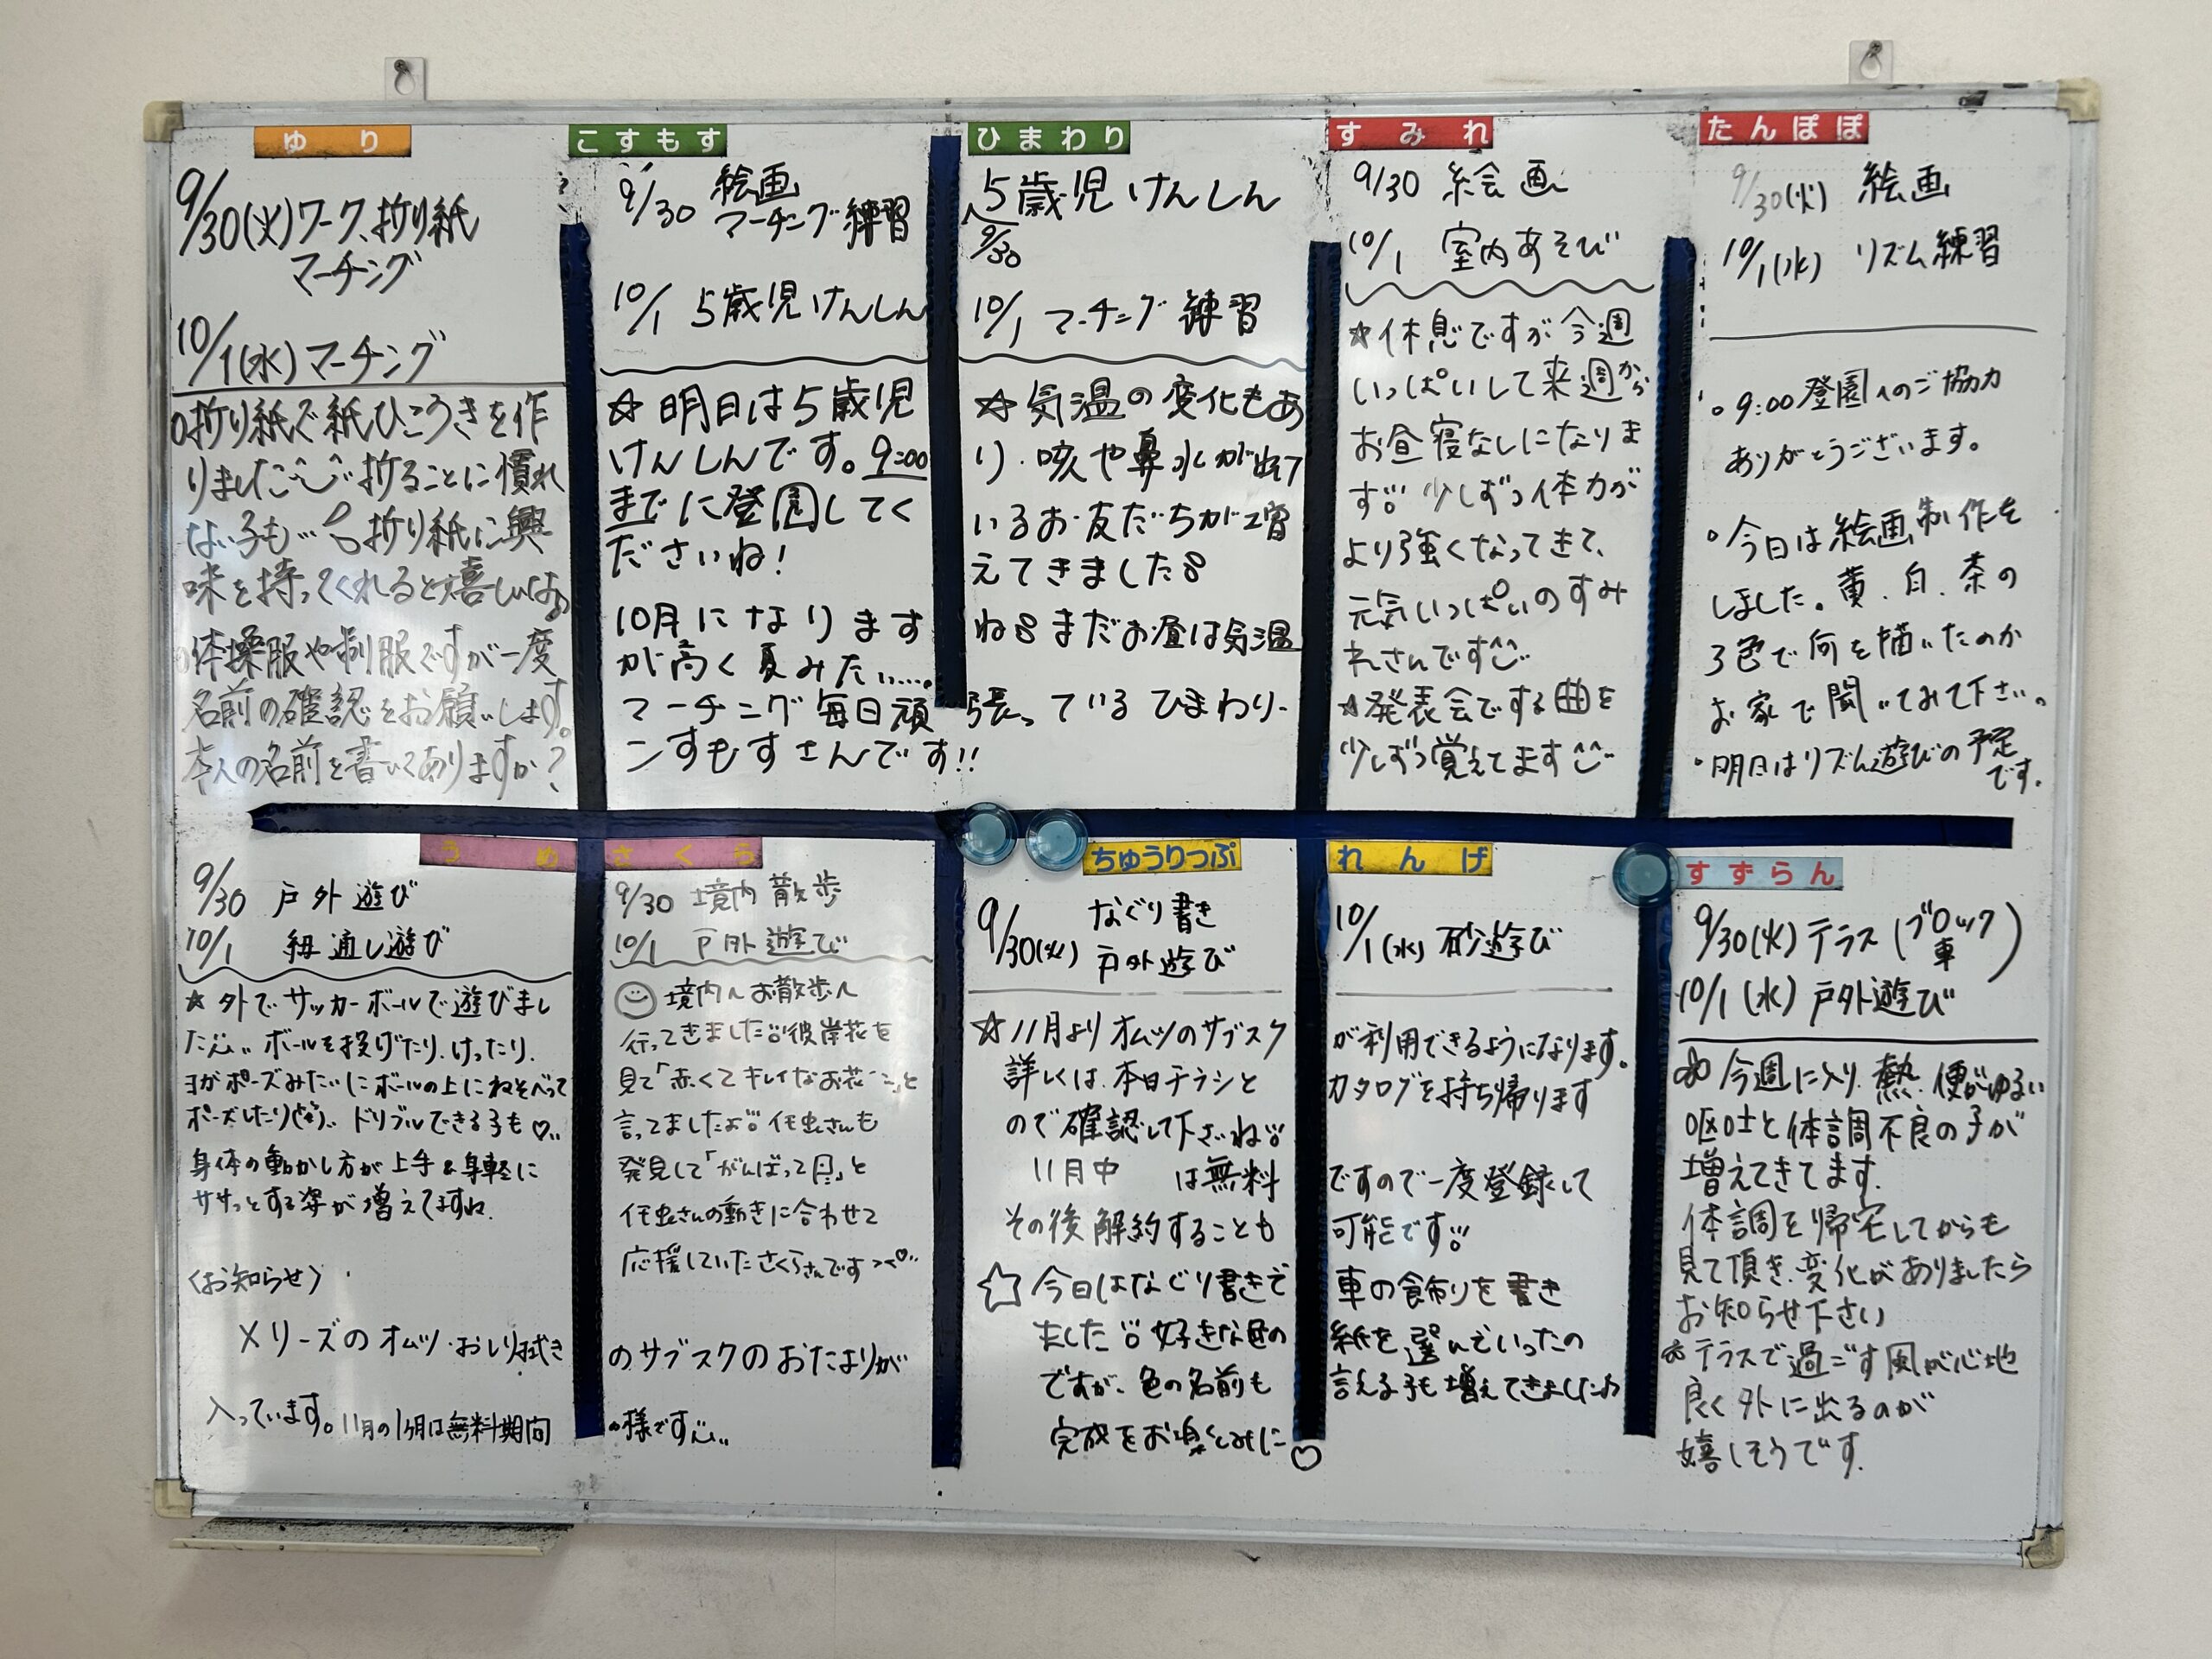 ゆり
9/30(火)ワーク、折り紙
マーチング
10/1(水)マーチング
折り紙で紙ひこうきを作
りました 折ることに慣れ
ない子も… 折り紙に興
味を持ってくれると嬉しいな
体操服や制服ですが一度
名前の確認をお願いします。
本人の名前を書いてありますか?
こすもす
9/30 絵画
マーチング練習
10/1 5歳児けんしん
☆明日は5歳児
けんしんです。9:00
までに登園してく
ださいね!
ひまわり
5歳児けんしん
9/30
10/1 マーチング練習
☆気温の変化もあ
り、咳や鼻水が出て
いるお友だちが増
えてきました
10月になります
ね まだお昼は気温
が高く夏みたい……。
マーチング毎日頑張っているひまわり・
こすもすさんです!!
すみれ
9/30 絵画
10/1 室内あそび
☆休息ですが今週
いっぱいして来週から
お昼寝なしになりま
す 少しずつ体力が
より強くなってきて、
元気いっぱいのすみ
れさんです
☆発表会でする曲を
少しずつ覚えてます
たんぽぽ
9/30(火) 絵画
10/1(水) リズム練習
。9:00登園へのご協力
ありがとうございます。
。今日は絵画制作を
しました。黄、白、茶の
3色で何を描いたのか
お家で聞いてみて下さい。
・明日はリズム遊びの予定
です。
うめ
9/30 戸外遊び
10/1 紐通し遊び
☆外でサッカーボールで遊びまし
た ボールを投げたり、けったり、
ヨガポーズみたいにボールの上にねそべって
ポーズしたり(笑) ドリブルできる子も♡
身体の動かし方が上手&身軽に
ササっとする姿が増えてますね
さくら
9/30 境内散歩
10/1 戸外遊び
境内へお散歩へ
行ってきました 彼岸花を
見て「赤くてキレイなお花〜」と
言ってましたよ 芋虫さんも
発見して「がんばって」と
芋虫さんの動きに合わせて
応援していたさくらさんです
〈お知らせ〉
メリーズのオムツ・おしり拭きのサブスクのおたよりが
入っています。11月の1ヶ月は無料期間の様です
ちゅうりっぷ
9/30(火) なぐり書き
戸外遊び
れんげ
10/1(水) 砂遊び
☆11月よりオムツのサブスクが利用できるようになります。
詳しくは、本日チラシとカタログを持ち帰ります
ので確認して下さいね
11月中は無料ですので一度登録して
その後解約することも可能です
☆今日はなぐり書きで車の飾りを書き
ました 好きな色の紙を選んでいったの
ですが、色の名前も言える子も増えてきましたね
完成をお楽しみに♡
すずらん
9/30(火) テラス(ブロック
車)
10/1(水) 戸外遊び
今週に入り、熱、便がゆるい
嘔吐と体調不良の子が
増えてきてます。
体調を帰宅してからも
見て頂き、変化がありましたら
お知らせ下さい
テラスで過ごす風が心地
良く外に出るのが
嬉しそうです。